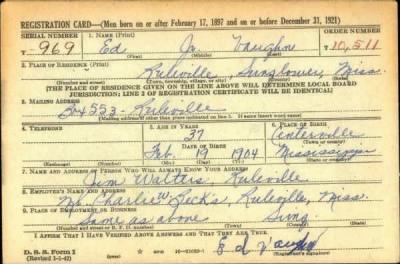 REGISTRATION CARD—(Men born on or after February 17, 1897 and on or before December 31, 1921)
SERIAL NUMBER 1. NAME (Print) ORDER NUMBER
T- 969 Ed Vaughn 10,511
(First) (Middle) (Last)
2. PLACE OF RESIDENCE (Print)
Ruleville, Sunflower, Miss.
(Number and street) (Town, township, village, or city) (County) (State)
[THE PLACE OF RESIDENCE GIVEN ON THE LINE ABOVE WILL DETERMINE LOCAL BOARD
JURISDICTION; LINE 2 OF REGISTRATION CERTIFICATE WILL BE IDENTICAL]
3. MAILING ADDRESS
Box 553 - Ruleville
[Mailing address if other than place indicated on line 2. If same insert word same]
4. TELEPHONE 5. AGE IN YEARS 6. PLACE OF BIRTH
37 Centerville
DATE OF BIRTH (Town or county)
Feb. 19 1904 Mississippi
(Exchange) (Number) (Mo.) (Day) (Yr.) (State or country)
7. NAME AND ADDRESS OF PERSON WHO WILL ALWAYS KNOW YOUR ADDRESS
Jim Walters, Ruleville
8. EMPLOYER'S NAME AND ADDRESS
Mr. Charlie Ruleville, Miss.
9. PLACE OF EMPLOYMENT OR BUSINESS
Same as above
(Number and street or R. F. D. number) (Town) (County) (State)
I AFFIRM THAT I HAVE VERIFIED ABOVE ANSWERS AND THAT THEY ARE TRUE.
Ed Vaughn
D. S. S. Form 1
(Revised 1-1-42) (over)